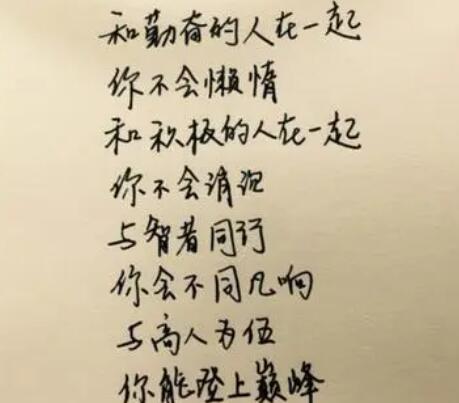 和勤奋的人在一起
你不会懒惰
和积极的人在一起
你不会消沉
与智者同行
你会不同凡响
与高人为伍
你能登上巅峰